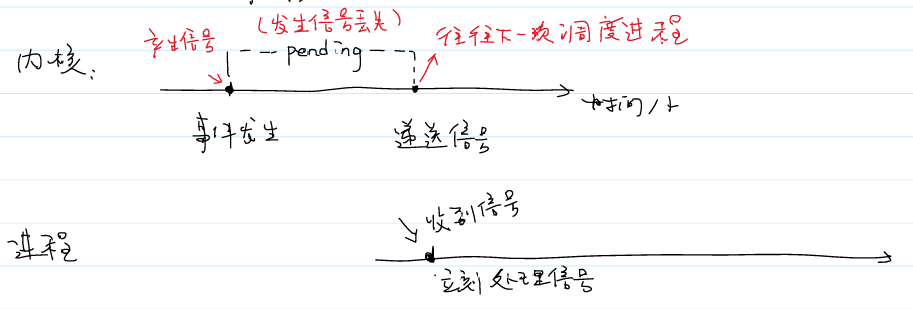 (发生信号丢失)
产生信号
pending
往往下一次调度进程
内核:
时间/t
事件发生
递送信号
收到信号
进程
立刻处理信号